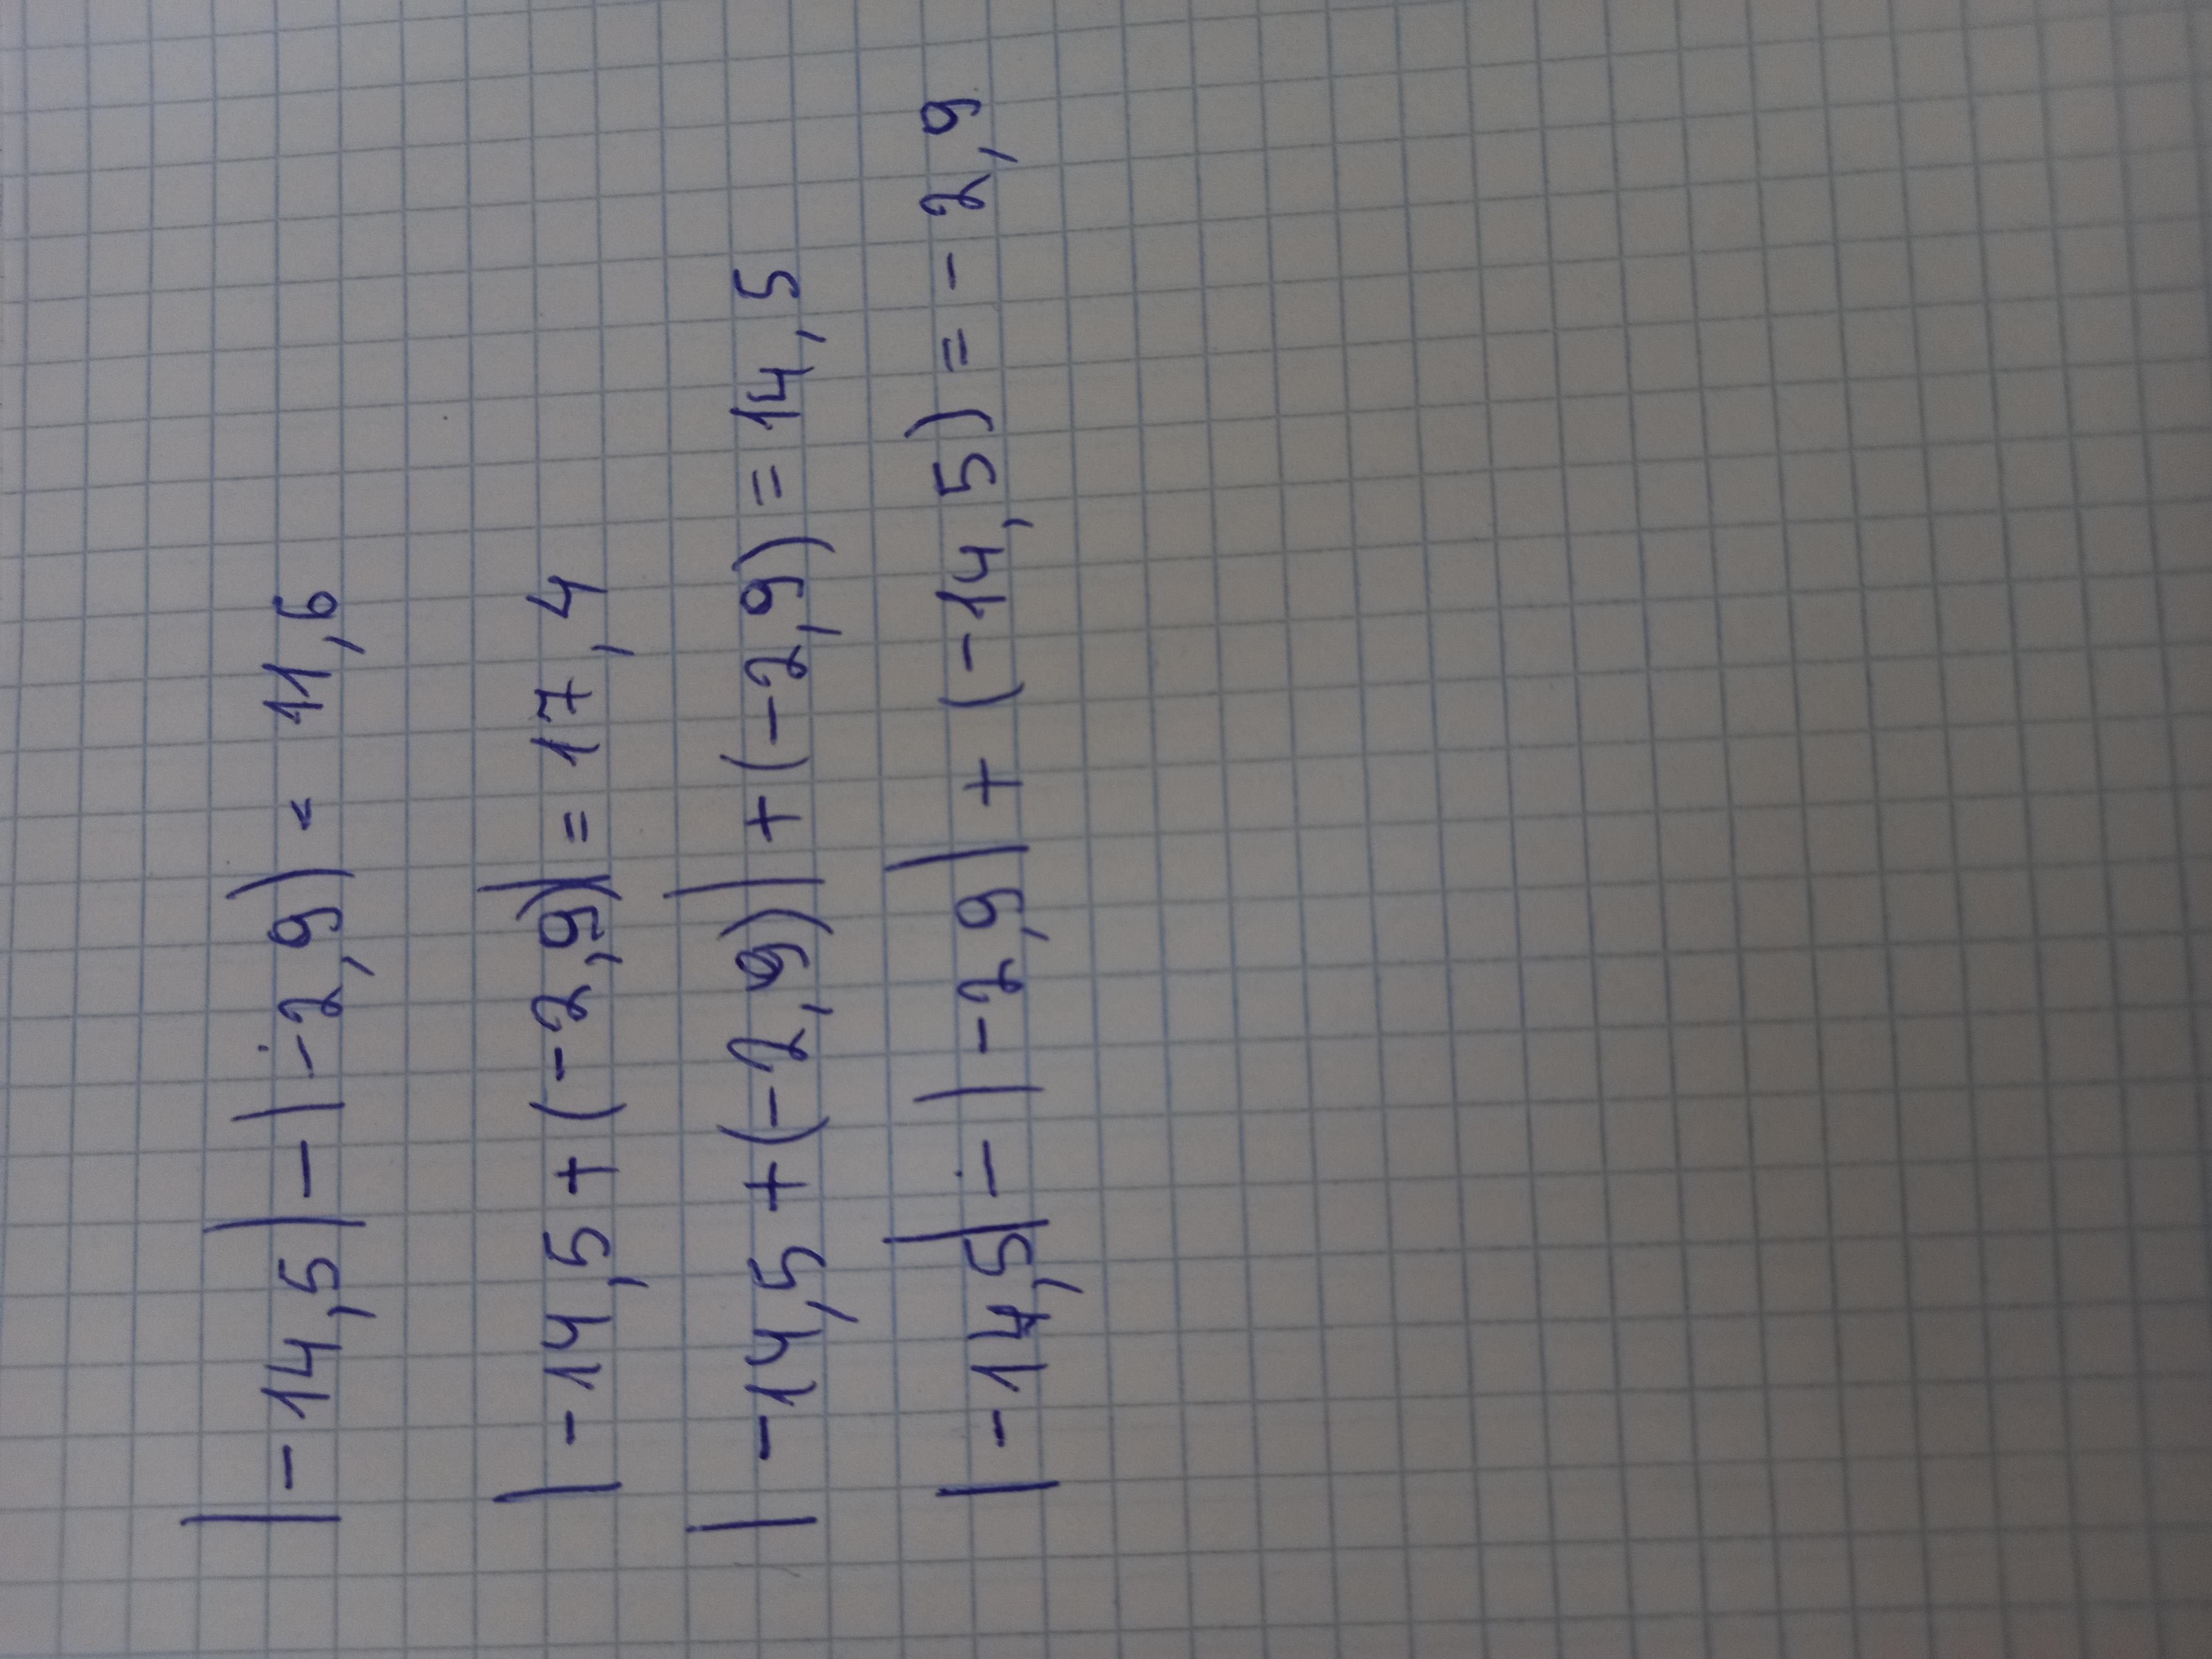 |-14,5|-|-2,9) = 11,6
|-14,5+(-2,9)|=17,4
|-14,5+(-2,9)|+(-2,9)=14,5
|-14,5|-|-2,9|+(-14,5)=-2,9